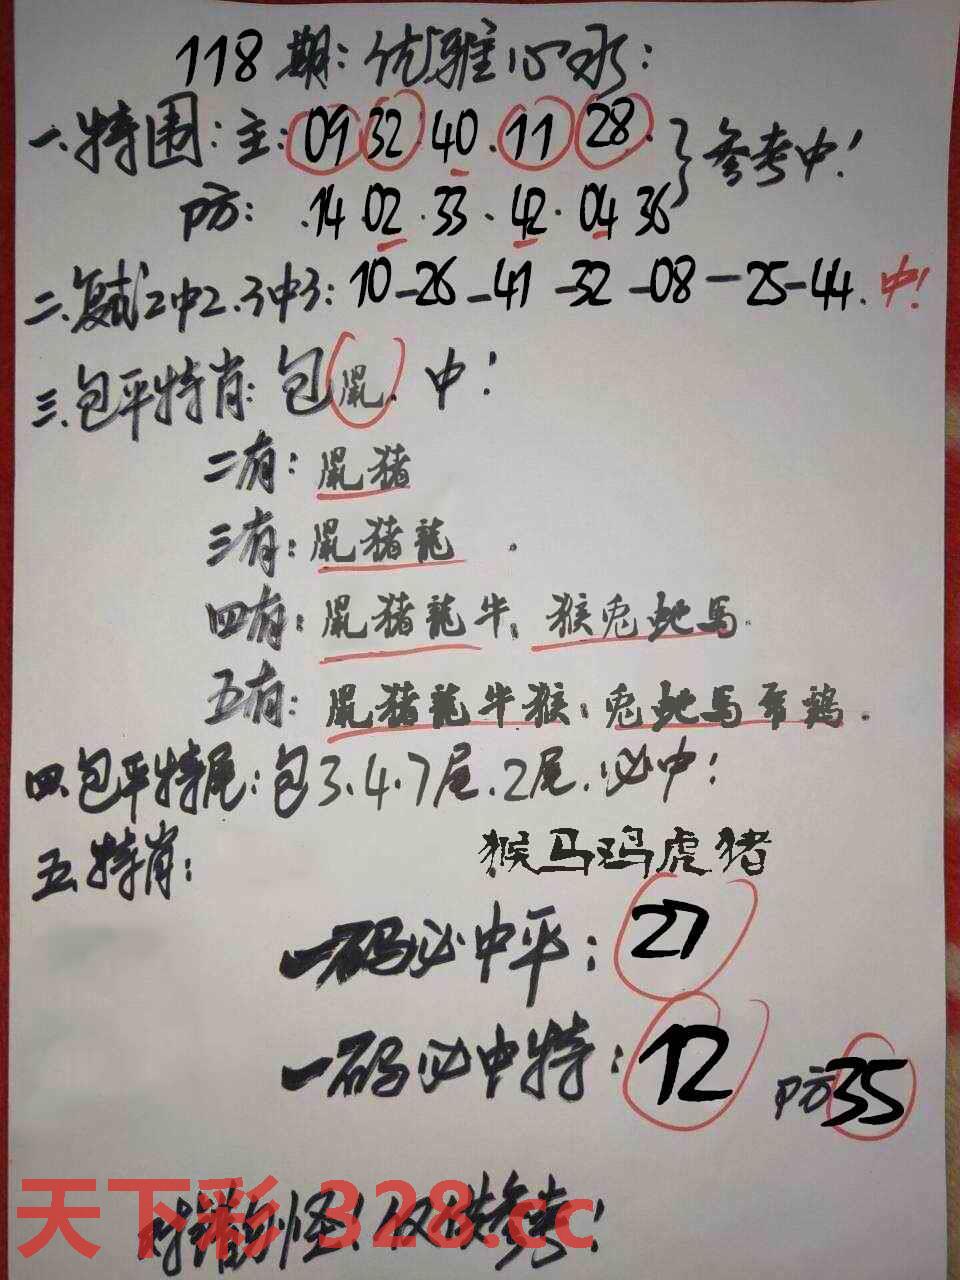 118期:优雅心水:
一.特围:主:09 32 40.11 28.
防: .14.02.33.42.04 36
}参考中!
二.复式2中2.3中3:10-26-41-32-08-25-44.中!
三.包平特肖:包鼠.中!
二有:鼠猪
三有:鼠猪龍.
四有:鼠猪龍牛;猴兔蛇馬.
五有:鼠猪龍牛猴;兔蛇馬虎鷄.
四.包平特尾:包3.4.7尾.2尾.必中!
五.特肖: 猴马鸡虎猪
一码必中平:27
一码必中特:12 防35
对错勿怪!仅供参考!
天下彩 328.cc